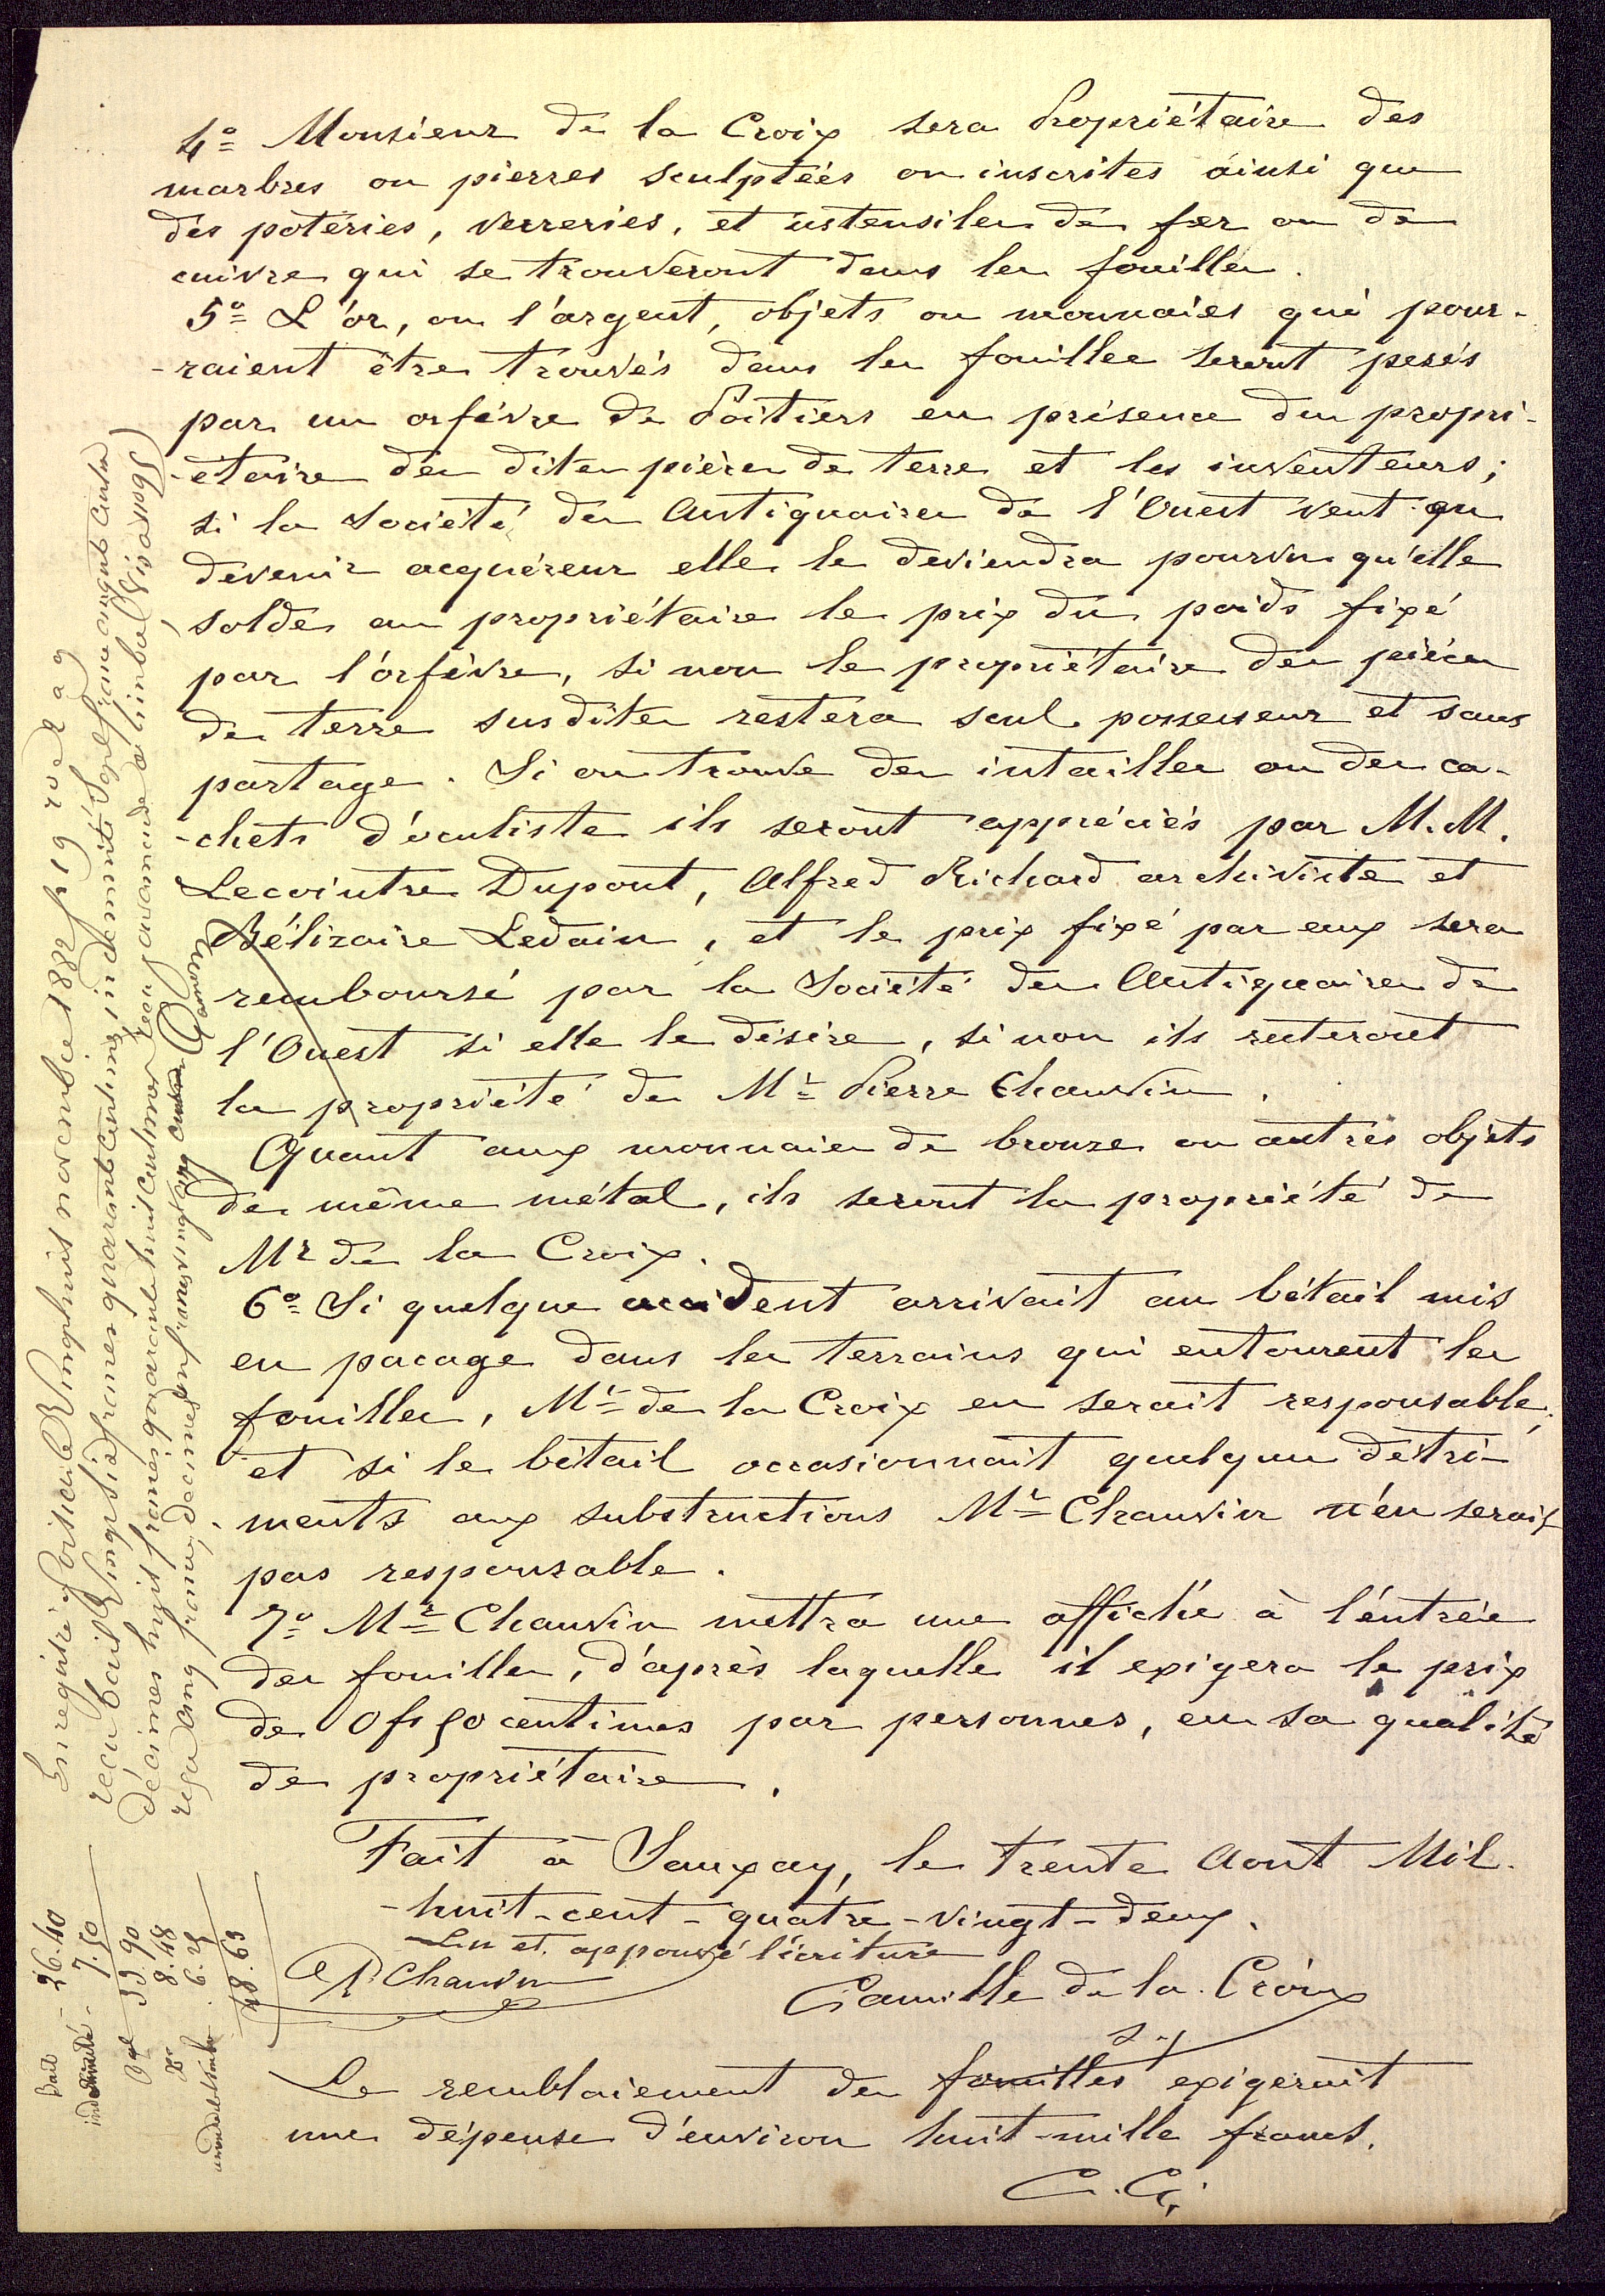 4º Monsieur de la Croix sera Propriétaire des
marbres ou pierres sculptées ou inscrites ainsi que
des poteries, verreries, et ustensiles de fer ou de
cuivre qui se trouveront dans les fouilles.
5º L'or, ou l'argent, objets ou monnaies qui pour-
-raient être trouvés dans les fouilles seront pesés
par un orfèvre de Poitiers en présence du propri-
-étaire des dites pièces de terre et les inventeurs;
si la société des Antiquaires de l'Ouest veut en
devenir acquéreur elle le deviendra pourvu qu'elle
solde au propriétaire le prix du poids fixé
par l'orfèvre, si non le propriétaire des pièces
de terre susdites restera seul possesseur et sans
partage. Si on trouve des intailles ou des ca-
-chets d'oculiste ils seront appréciés par M.M.
Lecointre Dupont, Alfred Richard archiviste et
Bélizaire Ledain, et le prix fixé par eux sera
remboursé par la Société des Antiquaires de
l'Ouest si elle le désire, si non ils resteront
la propriété de Mr Pierre Chauvin.
Quant aux monnaies de bronze ou autres objets
de même métal, ils seront la propriété de
Mr de la Croix.
6º Si quelque accident arrivait au bétail mis
en pacage dans les terrains qui entourent les
fouilles, Mr de la Croix en serait responsable;
et si le bétail occasionnait quelques détri-
-ments aux substructions Mr Chauvin n'en serait
pas responsable.
7º Mr Chauvin mettra une affiche à l'entrée
des fouilles, d'après laquelle il exigera le prix
de 0 fr 50 centimes par personnes, en sa qualité
de propriétaire.
Fait à Sanxay, le trente Aout Mil-
-huit-cent-quatre-vingt-deux.
Lu et approuvé l'écriture
P. Chauvin
Camille de la Croix
s. j.
Le remblaiement des fouilles exigerait
une dépense d'environ huit-mille francs.
C. C.
Enregistré à Poitiers le Vingt huit novembre 1882 fº 19 rº
reçu bail Vingt six francs quarante centimes, indemnité Sept francs cinquante centimes
décimes huit francs quarante huit centimes
reçu cinq francs, décimes un franc vingt cinq centimes
Bail - 26.40
indemnité - 7.50
33.90
8.48
6.25
48.63